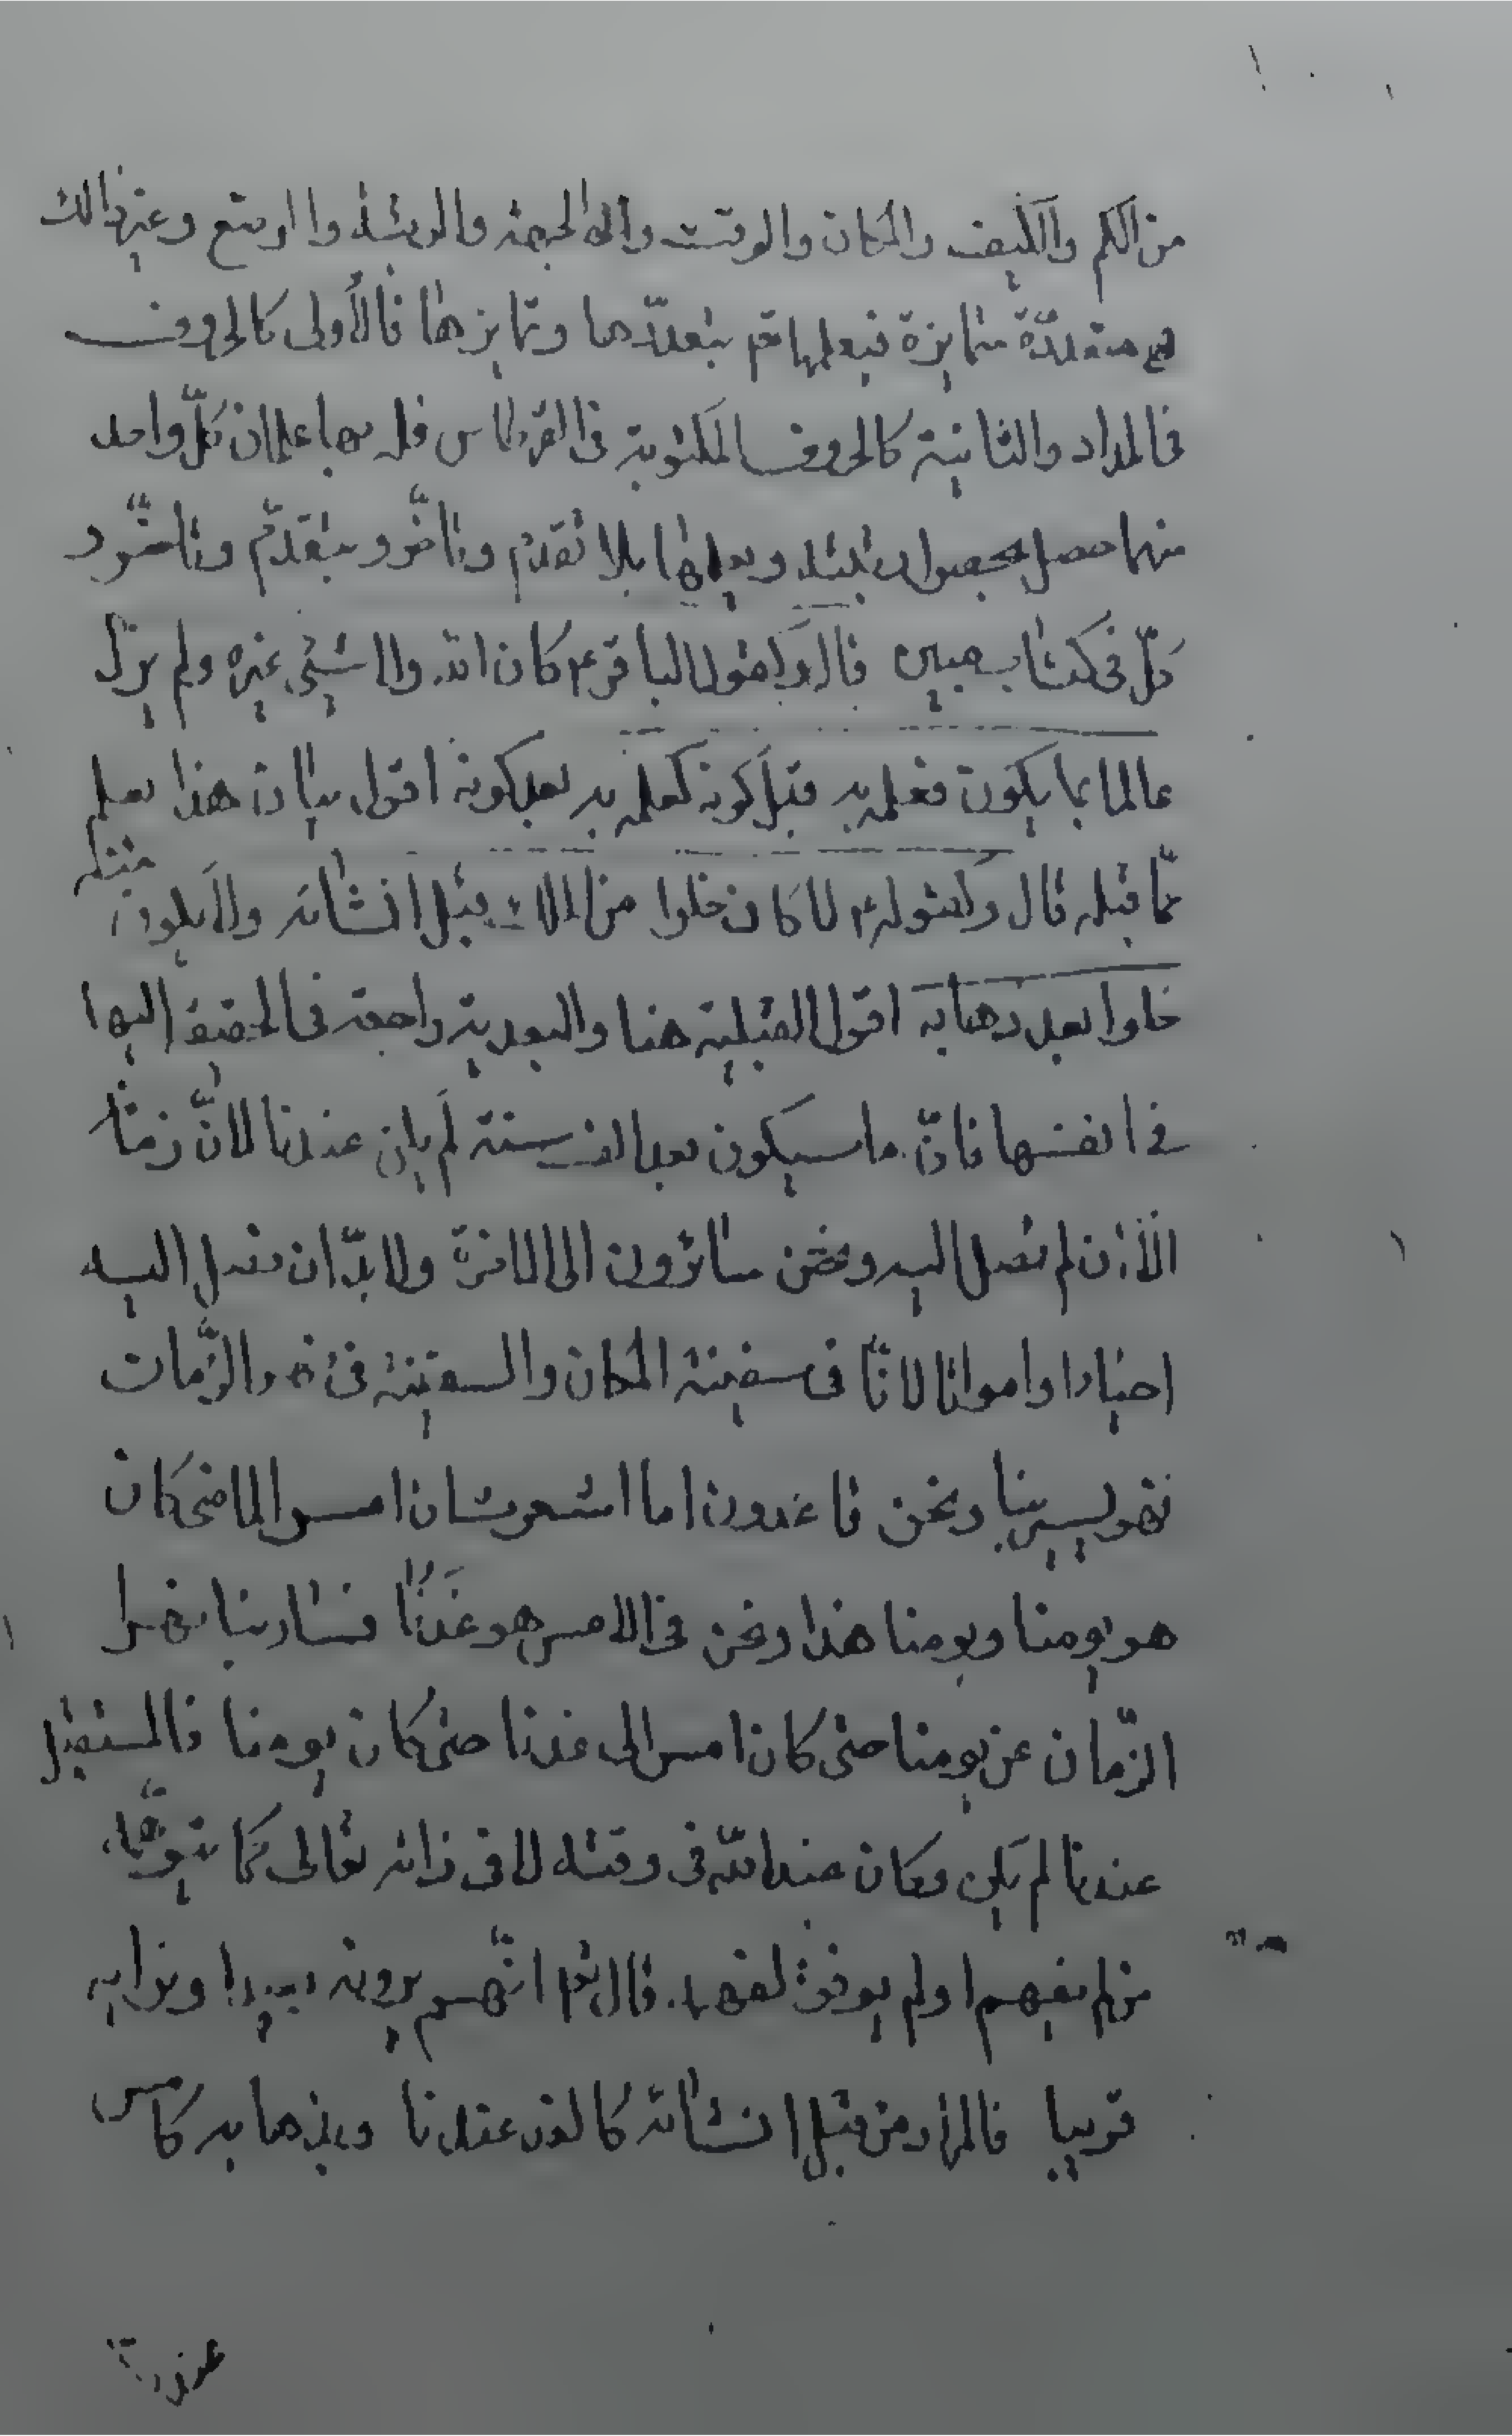 من الكم والكيف والمكان والوقت والجهة والرتبة والوضع وغير ذالك
هي متعددّة متمايزة فيعلمها بتعدّدها وتمايزها فالأولى كالحروف
في المداد والثانية كالحروف المكتوبة في القرطاس فله بها علمان كلّ واحد
منهما حصل بحصول رتبته ويعلمها بلا تقدم وتأخّر وبتقدّم وتأخّر و
كلّ في كتاب مبين قال ولقول الباقر ع كان الله ولا شيئ غيره ولم يزل
عالما بما يكون فعلمه به قبل كونه كعلمه به بعد كونه اقول بيان هذا يعلم
ممّا قبله قال ولقوله ع لا كان خلوا من الملك قبل انشائه ولا يكون منه
خلوا بعد ذهابه اقول القبلية هنا والبعدية راجعة في الحقيقة اليها
في انفسها فانّ ما سيكون بعد الف سنة لم يكن عندنا لانّ زمننا
الآن لم نصل اليه ونحن سائرون الى الاخرة ولا بدّ ان نصل اليه
احياء او امواتا لانّا في سفينة المكان والسفينة في نهر الزّمان
فهو يسير بنا ونحن قاعدون اما اشعرت ان امس الماضى كان
هو يومنا ويومنا هذا ونحن في الامس هو غدنا فسار بنا نهر
الزّمان عن يومنا حتى كان امس الى غدنا حتى كان يومنا فالمستقبل
عندنا لم يكن وكان عند الله في وقته لا في ذاته تعالى كما يتوهّمه
من لم يفهم اولم يوفق لفهم. قال تع انّهم يرونه بعيدا ونراه
قريبا فالمراد من قبل انشائه كالغد عندنا وبذهابه كامس
عندنا